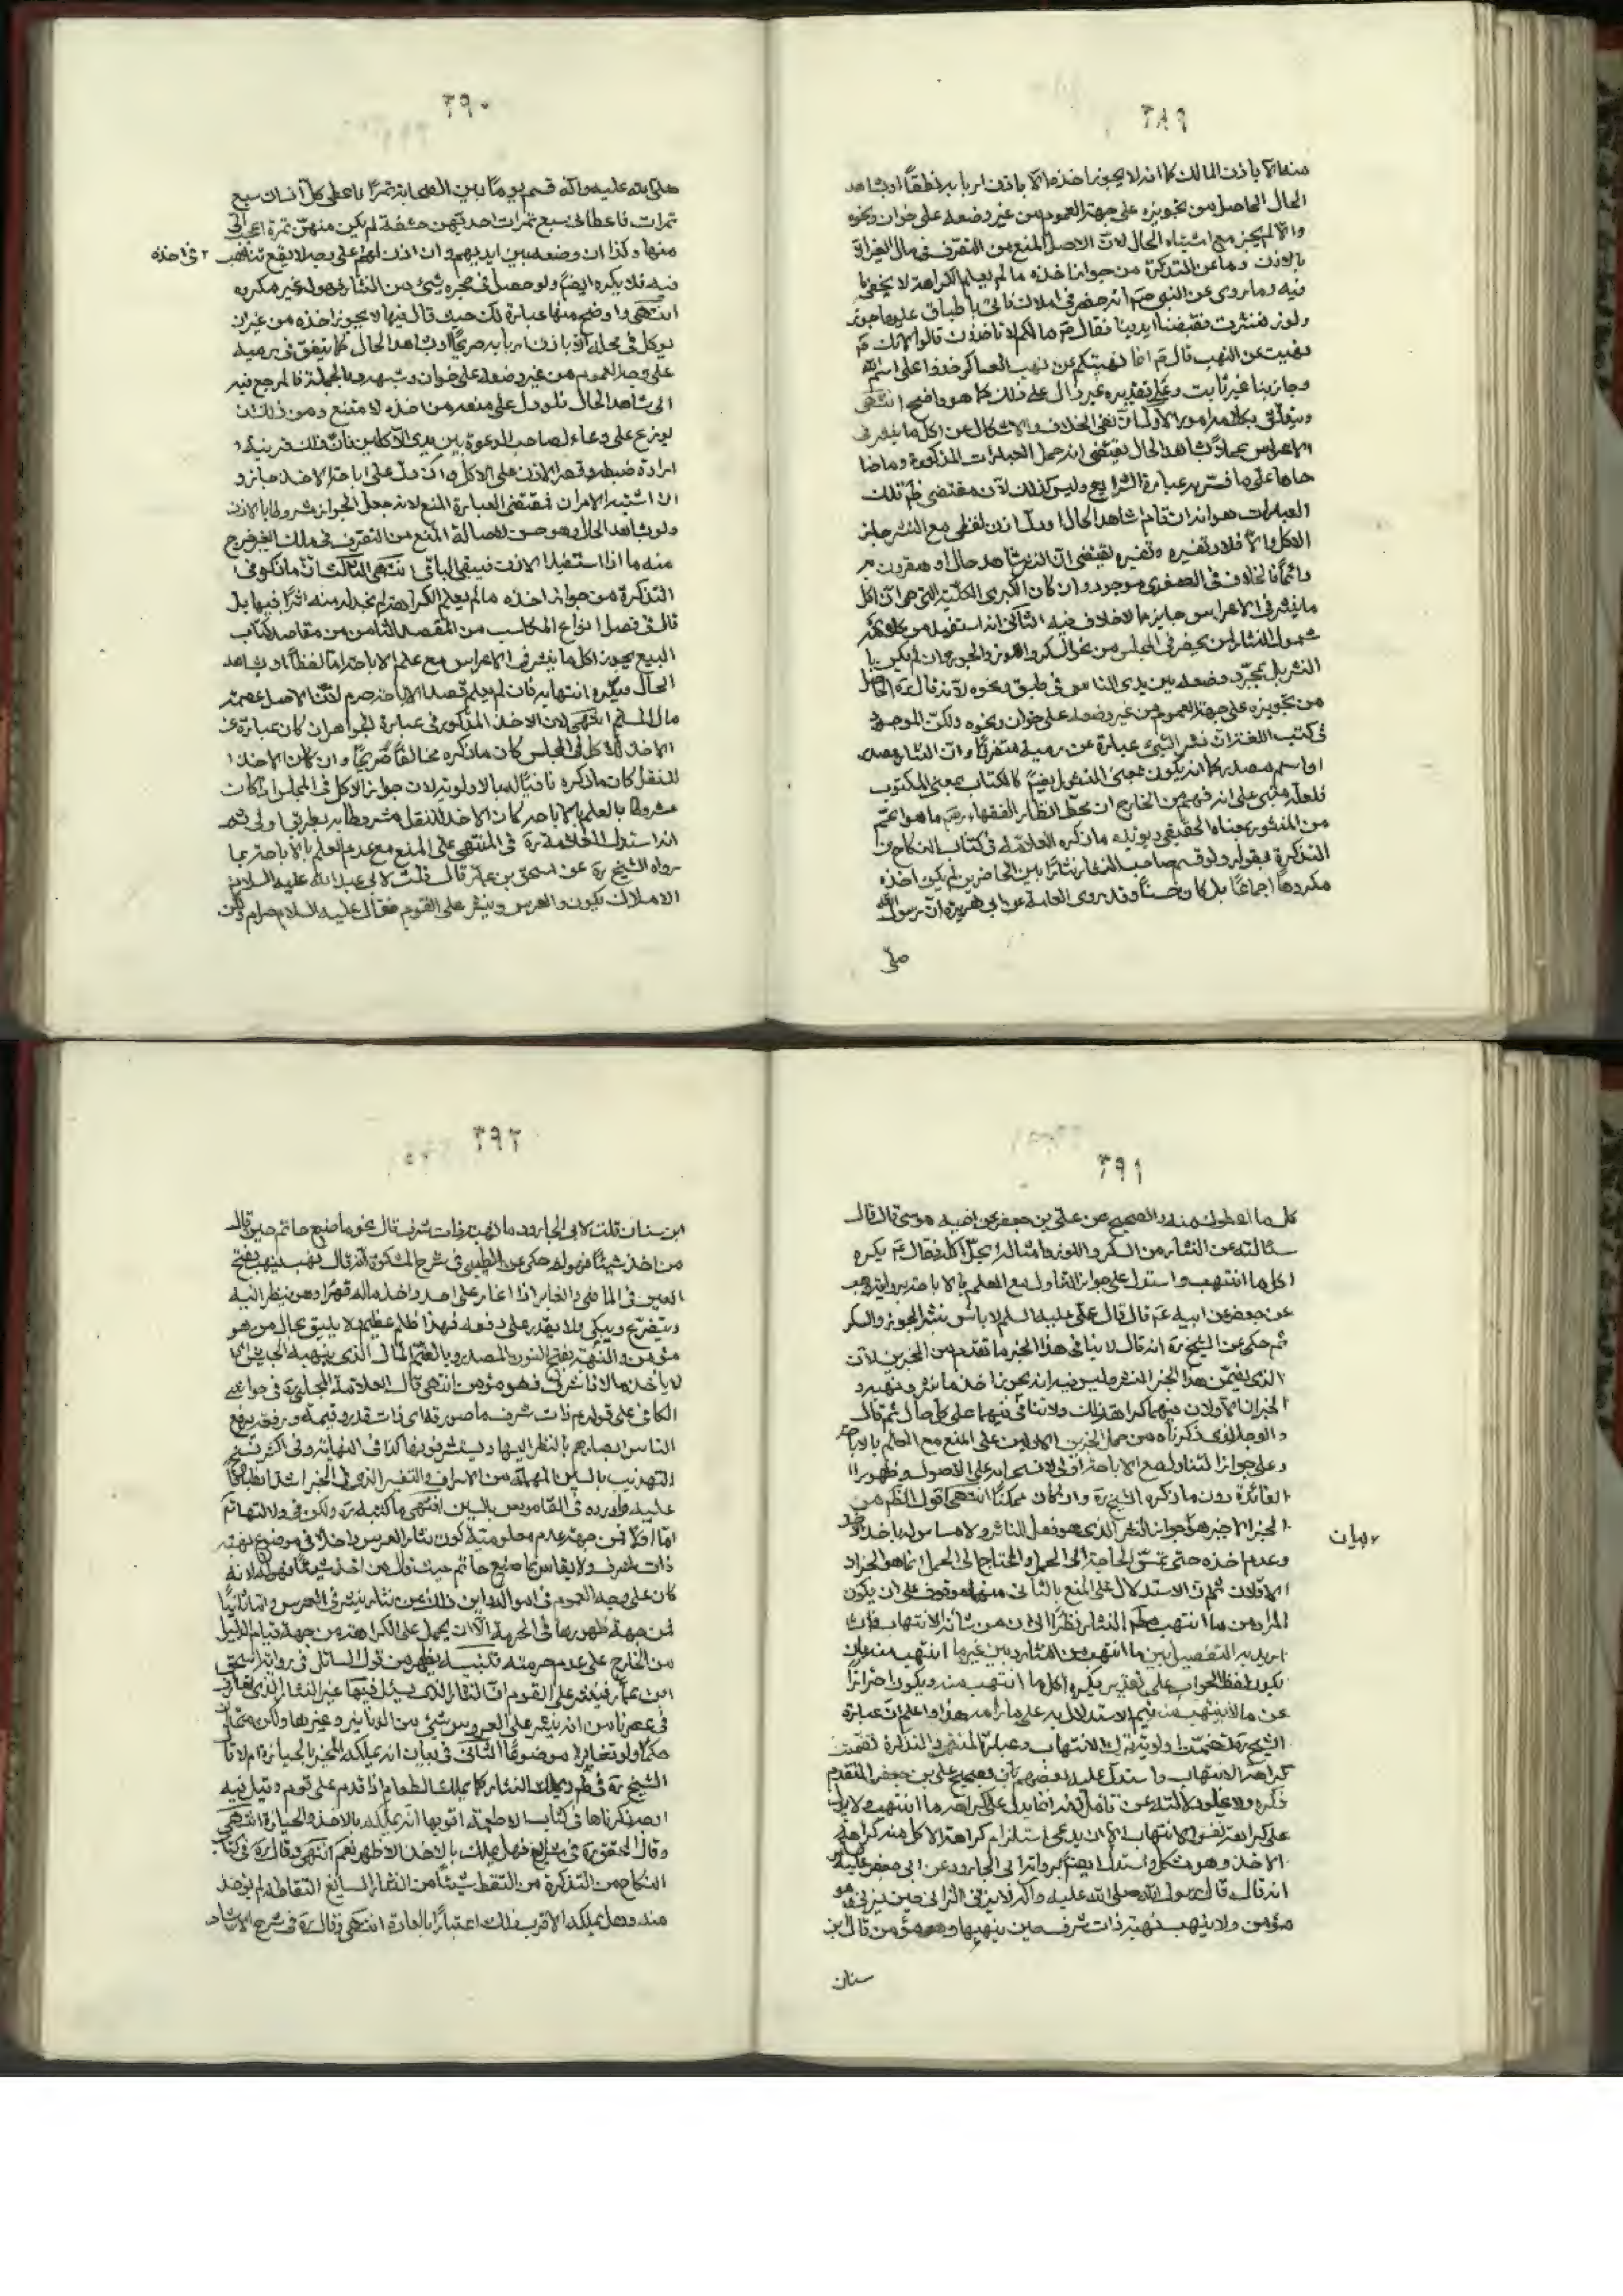 ٣٨٩
منها الا باذن المالك كما انه لا يجوز اخذها الا باذن اربابه نطقاً او بشاهد
الحال الحاصل من تجويزه على جهة العموم من غير وضعه على خوان ونحوه
والا لم يجز مع اشتباه الحال لان الاصل المنع من التصرف في مال الغير الا
بالاذن وما عن التذكرة من جواز اخذه ما لم يعلم الكراهة لا يخفى ما
فيه وما روى عن النبي انه حضر في املاك فاتى باطباق عليها جوز
ولوز فنثرت فقبضنا ايدينا فقال ما لكم لا تأخذون قالوا لانك
نهيت عن النهب قال انما نهيتكم عن نهب العساكر خذوا على اسم الله
وجاذبنا غير ثابت وعلى تقديره غير دال على ذلك كما هو واضح انتهى
ويتعلق بكلامه امور الاول ان نفى الخلاف والاشكال عن اكل ما ينثر في
الاعراس عملاً بشاهد الحال يقتضى انه حمل العبارات المذكورة وما ضا
هاها على ما فسر به عبارة الشرايع وليس كذلك لان مقتضى نظم تلك
العبارات هو انه ان قام شاهد الحال او دل اذن لفظى مع النثر جاز
الاكل والا فلا وتفسيره يقتضى ان النثر شاهد حال او مقرون به
دائماً فالخلاف في الصغرى موجود وان كان الكبرى الكلية التي هي ان اكل
ما ينثر في الاعراس جايز مما لا خلاف فيه الثاني انه استفيد من كلامه
شمول النثار لمن يحضر في المجلس من نحو السكر واللوز والجوز وان لم يكن با
لنثر بل بمجرد وضعه بين يدى الناس في طبق ونحوه لانه قال الحاصل
من تجويزه على جهة العموم من غير وضعه على خوان ونحوه ولكن الموجود
في كتب اللغة ان نثر الشئ عبارة عن رميه متفرقاً وان النثار مصدر
او اسم مصدر كما انه يكون بمعنى المنثور ايضاً كالكتاب بمعنى المكتوب
فلعله مبنى على انه فهم من الخارج ان محط انظار الفقهاء ما هو اعم
من المنثور بمعناه الحقيقي ويؤيده ما ذكره العلامة في كتاب النكاح من
التذكرة بقوله ولو قسم صاحب النثار نثاراً بين الحاضرين لم يكن اخذه
مكروهاً اجماعاً بل كان حسناً وقد روى العامة عن ابى هريرة ان رسول الله
صلى
٣٩٠
صلى الله عليه واله قسم يوماً بين اصحابه تمراً فاعطى كل انسان سبع
تمرات فاعطانى سبع تمرات احديهن حشفة لم يكن منهن تمرة اعجب الى
منها وكذا ان وضعه بين ايديهم وان اذن لهم على وجه لا يقع تناهب
في اخذه
فيه فلا يكره ايضاً ولو حصل في حجره شئ من النثار فهو له غير مكروه
انتهى واوضح منها عبارة لك حيث قال فيها لا يجوز اخذه من غير ان
يؤكل في محله الا باذن اربابه صريحاً او بشاهد الحال كما يتفق في رميه
على وجه العموم من غير وضعه على خوان وشبهه وبالجملة فالمرجع فيه
الى شاهد الحال فلو دل على منعه من اخذه لا متنع ومن ذلك ان
يوزع على دعاء لصاحب الدعوة بين يدى الآكلين فان ذلك قرينة
ارادة ضبطه وقصر الاذن على الاكل وان دل على اباحة الاخذ جاز و
ان اشتبه الامران فمقتضى العبارة المنع لانه جعل الجواز مشروطاً بالاذن
ولو بشاهد الحال وهو حسن لاصالة المنع من التصرف في ملك الغير خرج
منه ما اذا استفيد الاذن فيبقى الباقي انتهى الثالث ان ما ذكر في
التذكرة من جواز اخذه ما لم يعلم الكراهة لم نجد له منه اثراً فيها بل
قال في فصل انواع المكاسب من المقصد الثامن من مقاصد كتاب
البيع يجوز اكل ما ينثر في الاعراس مع علم الاباحة اما لفظاً او بشاهد
الحال ويكره انتهابه فان لم يعلم قصد الاباحة حرم لان الاصل عصمة
مال المسلم انتهى لان الاخذ المذكور في عبارة الجواهر ان كان عبارة عن
الاخذ للاكل في المجلس كان ما ذكره مخالفاً صريحاً وان كان الاخذ
للنقل كان ما ذكره نافياً له بالاولوية لان جواز الاكل في المجلس اذا كان
مشروطاً بالعلم بالاباحة كان الاخذ للنقل مشروطاً به بطريق اولى ثم
انه استدل العلامة ره في المنتهى على المنع مع عدم العلم بالاباحة بما
رواه الشيخ ره عن اسحق بن عمار قال قلت لابى عبد الله عليه السلام
الاملاك يكون والعرس وينثر على القوم فقال عليه السلام حرام ولكن
٣٩١
كل ما اعطوك منه والصحيح عن علي بن جعفر عن اخيه موسى قال قال
سئالته عن النثار من السكر واللوز وامثاله ايحل اكله فقال يكره
اكل ما انتهب واستدل على جواز التناول مع العلم بالاباحة برواية وهب
عن جعفر عن ابيه قال قال على عليه السلام لا بأس بنثر الجوز والسكر
ثم حكى عن الشيخ ره انه قال لا ينافى هذا الخبر ما تقدم من الخبرين لان
الذي تضمن هذا الخبر النثر وليس فيه انه يجوز اخذ ما نثر ونهبه و
الخبران الاولان فيهما كراهة ذلك ولا تنافى فيهما على كل حال ثم قال
والوجه الذي ذكرناه من حمل الخبرين الاولين على المنع مع العلم بالاباحة
وعلى جواز التناول مع الاباحة اولى لانسحابه على الاصول وظهور
الفائدة دون ما ذكره الشيخ ره وان كان ممكناً انتهى اقول الظاهر من
الخبر الاخير هو بيان جواز النثر الذي هو فعل الناثر ولا مساس له باخذ الاخذ
وعدم اخذه حتى تمس الحاجة الى الحمل والمحتاج الى الحمل انما هو الخبران
الاولان ثم ان الاستدلال على المنع بالثانى منهما موقوف على ان يكون
المراد من ما انتهب مطلق النثار نظراً الى ان من شأنه الانتهاب فان
اريد به التفصيل بين ما انتهب من النثار وبين غير ما انتهب منه بان
يكون لفظ الجواب على تقدير يكره اكل ما انتهب منه ويكون احترازاً
عن ما لا ينتهب منه لم يتم الاستدلال به على ما رامه هذا واعلم ان عبارة
الشيخ ره تضمنت اولوية ترك الانتهاب وعبارة المنتهى والتذكرة تضمنت
كراهة الانتهاب واستدل عليه بعضهم بان صحيح على بن جعفر المتقدم
ذكره ولا يخلو دلالته عن تامل لانه انما يدل على كراهة ما انتهب ولا يدل
على كراهة نفس الانتهاب الا ان يدعى استلزام كراهة الاكل منه كراهة
الاخذ وهو مشكل واستدل ايضاً برواية ابى الجارود عن ابى جعفر عليه السلام
انه قال قال رسول الله صلى الله عليه واله لا يزنى الزانى حين يزنى وهو
مؤمن ولا ينهب نهبة ذات شرف حين ينهبها وهو مؤمن قال ابن
سنان
بيان
٣٩٢
ابن سنان قلت لابى الجارود ما نهبة ذات شرف قال نحو ما صنع حاتم حين قال
من اخذ شيئاً فهو له حكى عن الطيبى في شرح المشكوة انه قال نهب ينهب بفتح
العين في الماضى والغابر اذا اغار على احد واخذ ماله قهراً وهو ينظر اليه
ويتضرع ويبكى ولا يقدر على دفعه فهذا ظلم عظيم لا يليق بحال من هو
مؤمن والنهبة بفتح النون المصدر وبالضم المال الذي ينهبه الجيش اى
لا يأخذ مالاً ذا شرف وهو مؤمن انتهى قال العلامة المجلسى ره في حواشى
الكافى على قوله ذات شرف ما صورته اى ذات قدر وقيمة ورفعة يرفع
الناس ابصارهم بالنظر اليها ويستشرفونها كذا في النهاية وفى اكثر نسخ
التهذيب بالسين المهملة من الاسراف والتفسير الذي في الخبر اشد انطباقاً
عليه واورده في القاموس بالسين انتهى ما كتبه ره ولكن في دلالتها تأمل
اما اولاً فمن جهة عدم معلومية كون نثار العرس داخلاً في موضوع نهبة
ذات شرف ولا يقاس بما صنع حاتم حيث قال من اخذ شيئاً فهو له لانه
كان على وجه العموم في امواله واين ذلك من نثار ينثر في العرس واما ثانياً
فمن جهة ظهورها في الحرمة الا ان يحمل على الكراهة من جهة قيام الدليل
من الخارج على عدم حرمته تنبيه يظهر من قول السائل في رواية اسحق
ابن عمار فينثر على القوم ان النثار الذي يسئل فيها غير النثار الذي تعارف
في عصرنا من انه ينثر على العروس شئ من الدنانير وغيرها ولكن متحد
حكماً ولو تغايرا موضوعاً الثانى في بيان انه يملكه المحيز بالحيازة ام لا قال
الشيخ ره في ط ويملك النثار كما يملك الطعام اذا قدم على قوم وقيل فيه
اوجه ذكرناها في كتاب الاطعمة اقويها انه يملكه بالاخذ والحيازة انتهى
وقال المحقق ره في الشرايع وهل يملك بالاخذ الاظهر نعم انتهى وقال ره في كتاب
النكاح من التذكرة من التقط شيئاً من النثار السايغ التقاطه لم يؤخذ
منه وهل يملكه الاقرب ذلك اعتباراً بالعادة انتهى وقال ره في شرح الارشاد